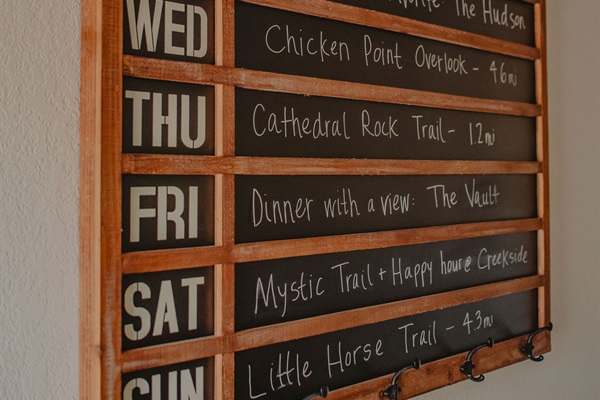 The Hudson
WED Chicken Point Overlook - 46mi
THU Cathedral Rock Trail - 1.2mi
FRI Dinner with a view: The Vault
SAT Mystic Trail + Happy hour @ Creekside
SUN Little Horse Trail - 4.3mi